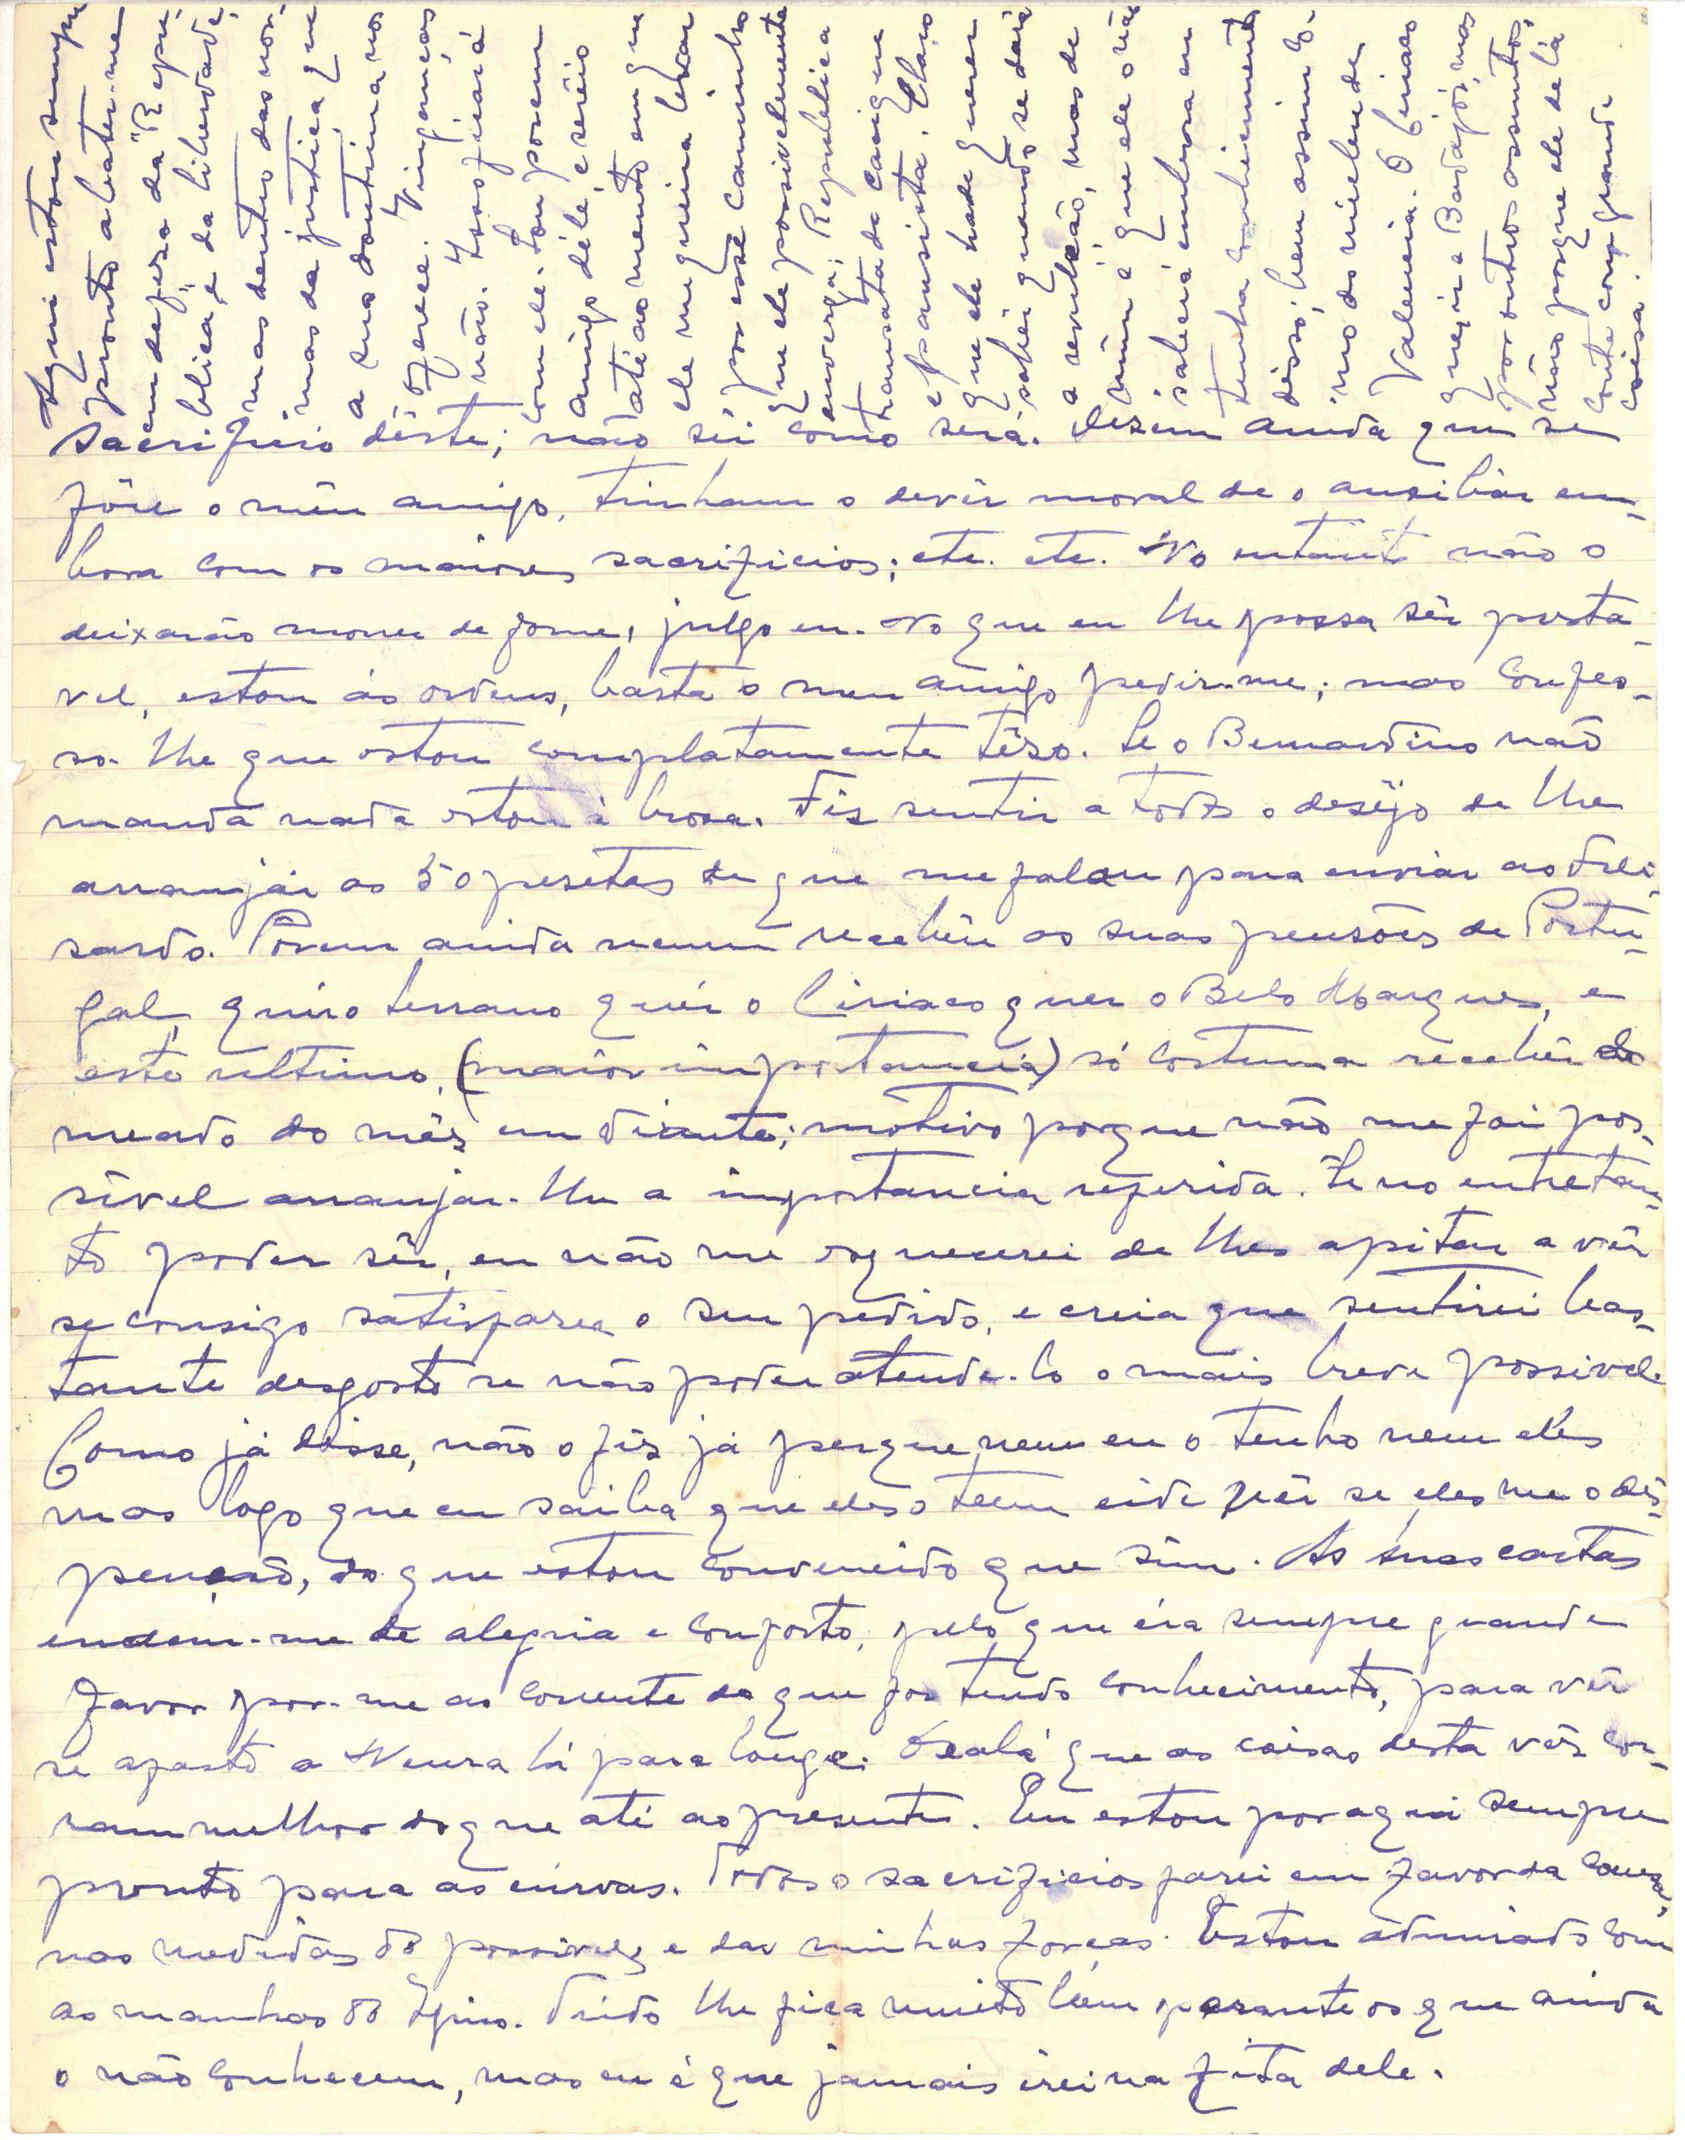 sacrificio dêste; não sei como será. Dizem ainda que se
fôsse o mêu amigo, tinham o devêr moral de o ausiliàr em-
bora com os maiores sacrificios; etc. etc. No entanto não o
deixarão morrer de fome, julgo eu. No que eu lhe possa sêr presta-
vel, estou ás ordens, basta o meu amigo pedir-me; mas confes-
so-lhe que estou complatamente têso. Se o Bernardino não
manda nada estou á brosa. Fis sentir a todos o desêjo de lhe
arranjár as 50 pesetas de que me falou para enviar ao Feli-
sardo. Porem ainda nenum recebêu as suas pensões de Portu-
gal, quér o Serrano quér o Ciriaco quer o Belo Marques, e
este ultimo, (maior importancia) só costuma recebêr do
meado do mês em diante; motivo porque não me foi pos-
sivel arranjar-lhe a importancia referida. Se no entretan-
to poder sêr, eu não me esquecerei de lhes apitar a vêr
se consigo satisfazer o seu pedido, e creia que sentirei bas-
tante desgosto se não poder atende-lo o mais breve possivel.
Como já disse, não o fis já porque nem eu o tenho nem eles
mas logo que eu saiba que eles o teem eide vêr se eles me o dis-
pensão, do que estou convencido que sim. As suas cartas
enchem-me de alegria e conforto, pelo que éra sempre grande
favor por-me ao corrente do que fos tendo conhecimento, para vêr
se afasto a Neura lá para longe. Oxalá que as coisas desta vês cor-
ram melhor do que até ao presente. Eu estou por aqui sempre
pronto para as cúrvas. Todos o sacrificios farei em favor da causa,
nas medidas do possivel e das minhas forças. Estou admirado com
as manhas do Iginio. Tudo lhe fica muito bem perante os que ainda
o não conhecem, mas eu é que jamais irei na fita dele.
Aqui estou sempre
pronto a bater-me
em defeza da "Repu-
blica" e da liberdade,
mas dentro das nor-
mas da justiça que
a sua doutrina nos
oferece. Vinganças
não. Isso ficará
com ele. Sou porem
amigo dêle, e serêi
até ao mento em que
ele me queira levar
por esse caminho
que ele possivelmente
enverga; Republica
transata de cacique
e pansista. Claro
que ele hade querer
sabêr quando se dará
a revolução, mas de
mim é que ele o não
saberá embora eu
tenha conhecimento
disso; bem assim co-
mo dos mielendes
Valencia. O Ciriaco
quer ir a Badajós, mas
por outros assuntos,
não porque ele de lá
conte com grande
coisa.